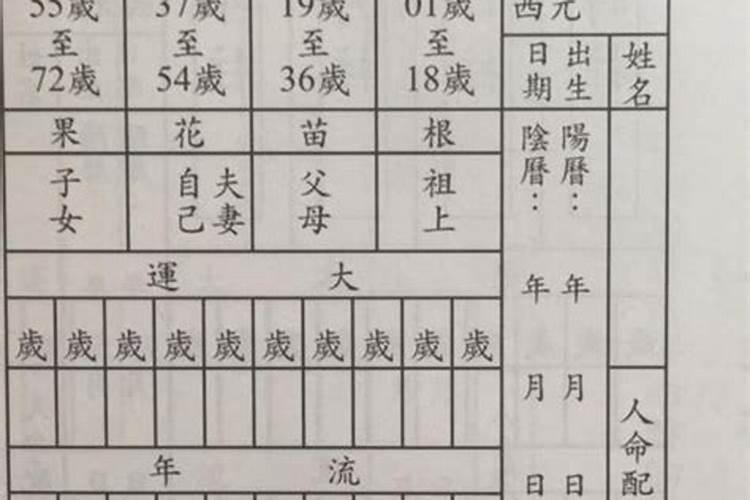 姓名
人命配
西元
出生日期
陽曆： 年 月 日
陰曆： 年 月 日
01歲至18歲
19歲至36歲
37歲至54歲
55歲至72歲
根
苗
花
果
祖上
父母
夫妻
自己
子女
大運
歲 歲 歲 歲 歲 歲 歲 歲 歲 歲
流年